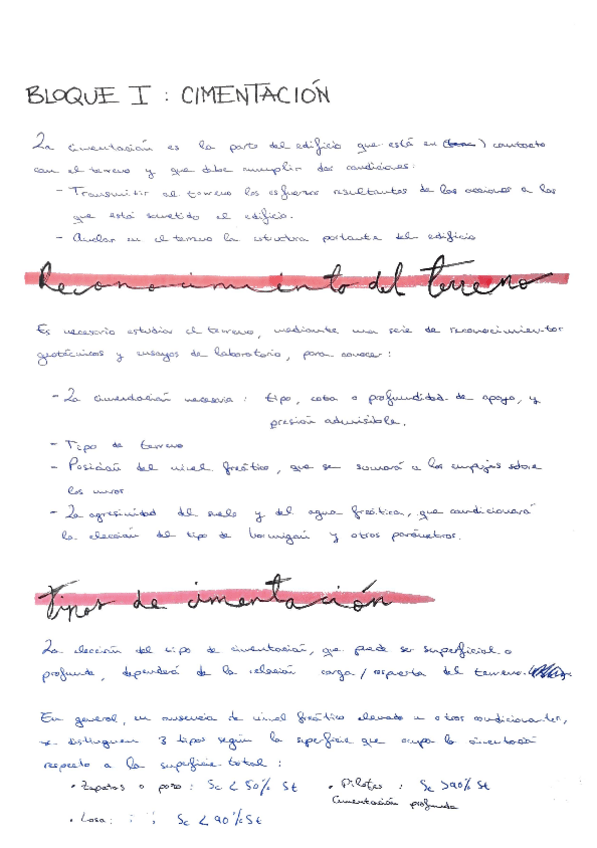 BLOQUE I : CIMENTACIÓN
La cimentación es la parte del edificio que está en contacto
con el terreno y que debe cumplir dos condiciones:
- Transmitir al terreno los esfuerzos resultantes de las acciones a las
que está sometido el edificio.
- Anclar en el terreno la estructura portante del edificio
Reconocimiento del terreno
Es necesario estudiar el terreno, mediante una serie de reconocimientos
geotécnicos y ensayos de laboratorio, para conocer:
- La cimentación necesaria : tipo, cota o profundidad de apoyo, y
presión admisible.
- Tipo de terreno
- Posición del nivel freático, que se sumará a los empujes sobre
los muros
- La agresividad del suelo y del agua freática, que condicionará
la elección del tipo de hormigón y otros parámetros.
Tipos de cimentación
La elección del tipo de cimentación, que puede ser superficial o
profunda, dependerá de la relación carga / respuesta del terreno.
En general, en ausencia de nivel freático elevado u otros condicionantes,
se distinguen 3 tipos según la superficie que ocupa la cimentación
respecto a la superficie total :
• Zapatas o pozo : Sc < 50% St • Pilotes : Sc >90% St
Cimentación profunda
• Losa : Sc < 90% St